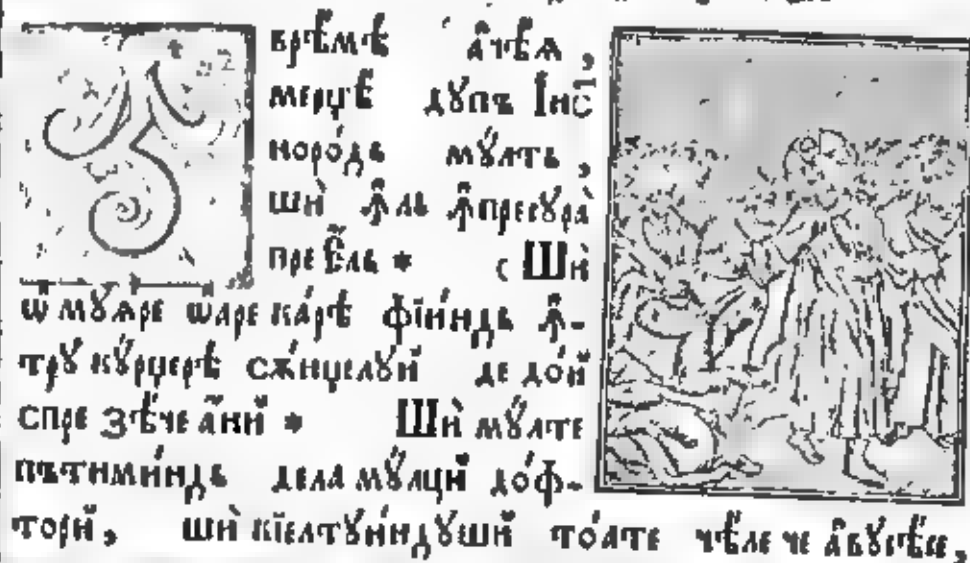 врѣмѣ а҆чѣѧ,
мерџѣ дꙋпъ І҆и҃с
норо́дь мꙋ́лть,
шѝ ꙟ҆ль ꙟ҆пресꙋра̀
пре є҆́ль * с Шѝ
ѡ҆ мꙋѧ́ре ѡ҆аре ка́рѣ фїи́ндь ꙟ҆-
трꙋ кꙋ́рџерѣ сѫ́нџелꙋй де до́й
спре зѣ́че а҆́ни * Шѝ мꙋ́лте
пътими́ндь дела мꙋ́лци до́ф-
тори, шѝ кїелтꙋи́ндꙋши то́ате чѣ́ле че а҆вꙋсѣ́се,